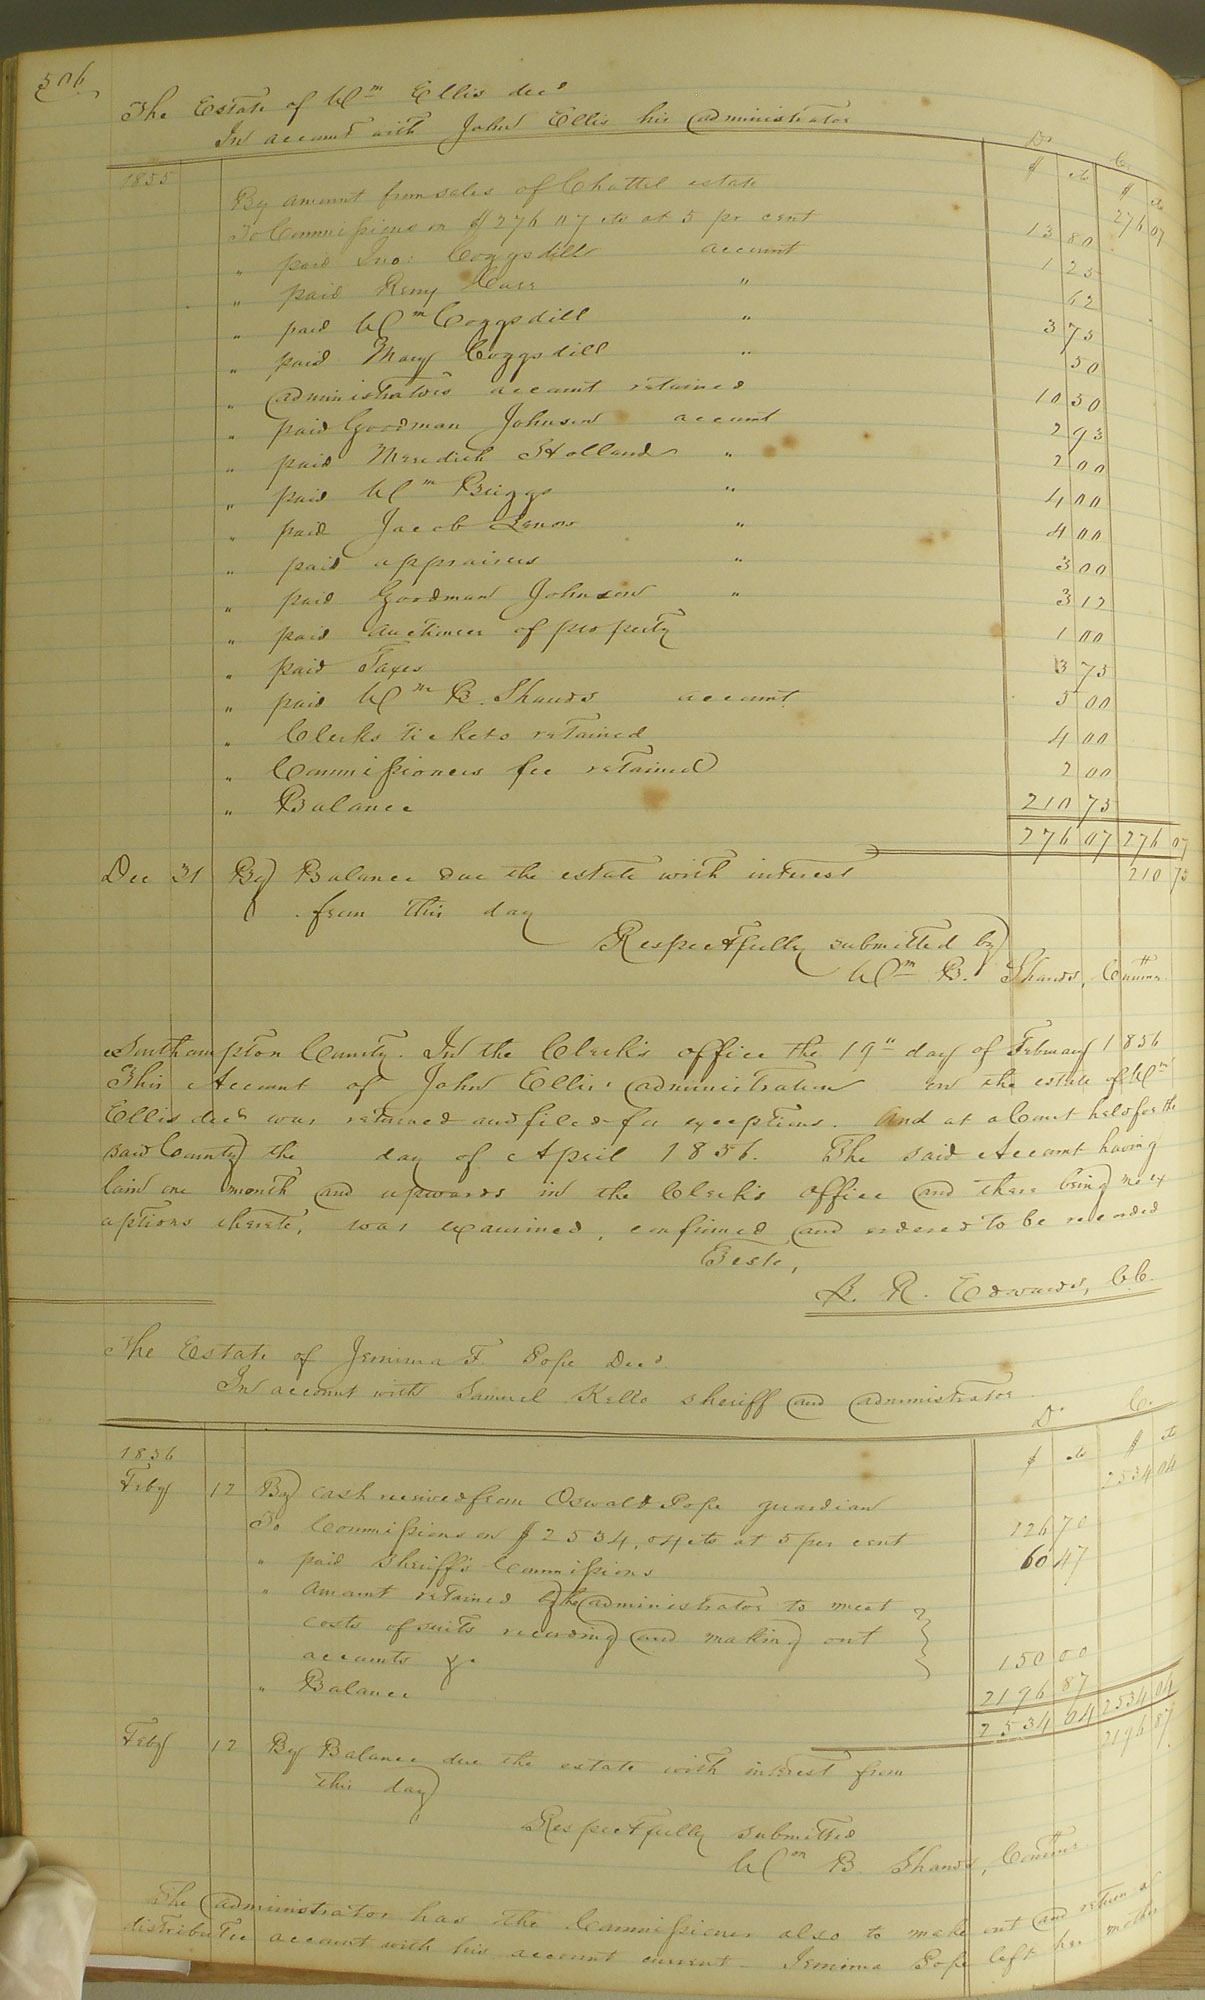 506
The Estate of Wm Ellis decd
In account with John Ellis his administrator
Dr Cr
1855 $ cts $ cts
By amount from sales of Chattel estate 276 07
To Commissions on $276 07 cts at 5 pr cent 13 80
" paid Jno: Coggsdill account 1 25
" paid Remy " 62
" paid Wm Coggsdill " 3 75
" paid Mary Coggsdill " 50
" administrators account retained 10 50
" paid Goodman Johnson account 2 93
" paid Meredith Holland " 2 00
" paid Wm Briggs " 4 00
" paid Jacob Lenow " 4 00
" paid appraisers " 3 00
" paid Goodman Johnson " 3 12
" paid auctineer of property 1 00
" paid Taxes 3 75
" paid Wm B. Shands account 5 00
" Clerks tickets retained 4 00
" Commissioners fee retained 2 00
" Balance 210 75
276 07 276 07
Dec 31 By Balance due the estate with interest 210 75
from this day
Respectfully submitted by
Wm B. Shands, Commr
Southampton County. In the Clerk's office the 19" day of February 1856
This Account of John Ellis' administration on the estate of Wm
Ellis decd was returned and filed for exceptions. And at a Court held for the
said County the day of April 1856. The said Account having
lain one month and upwards in the Clerk's office and there being no ex
eptions thereto, was examined, confirmed and ordered to be recorded
Teste,
L. R. Edwards, CC.
The Estate of Jemima F. Pope Decd.
In account with Samuel Kello sheriff and administrator
Dr Cr
1856 $ cts $ cts
Feby 12 By cash received from Oswald Pope guardian 2534 04
To Commissions on $2534,04 cts at 5 per cent 126 70
" paid Sheriff's Commissions 60 47
" Amount retained by the administrator to meet
costs of suits recording and making out
accounts &c 150 00
" Balance 2196 87
2534 04 2534 04
Feby 12 By Balance due the estate with interest from 2196 87
this day
Respectfully submitted
Wm B. Shands, Commr
The administrator has the Commissioner also to make out and return a
distributee account with his account current - Jemima Pope left her mother